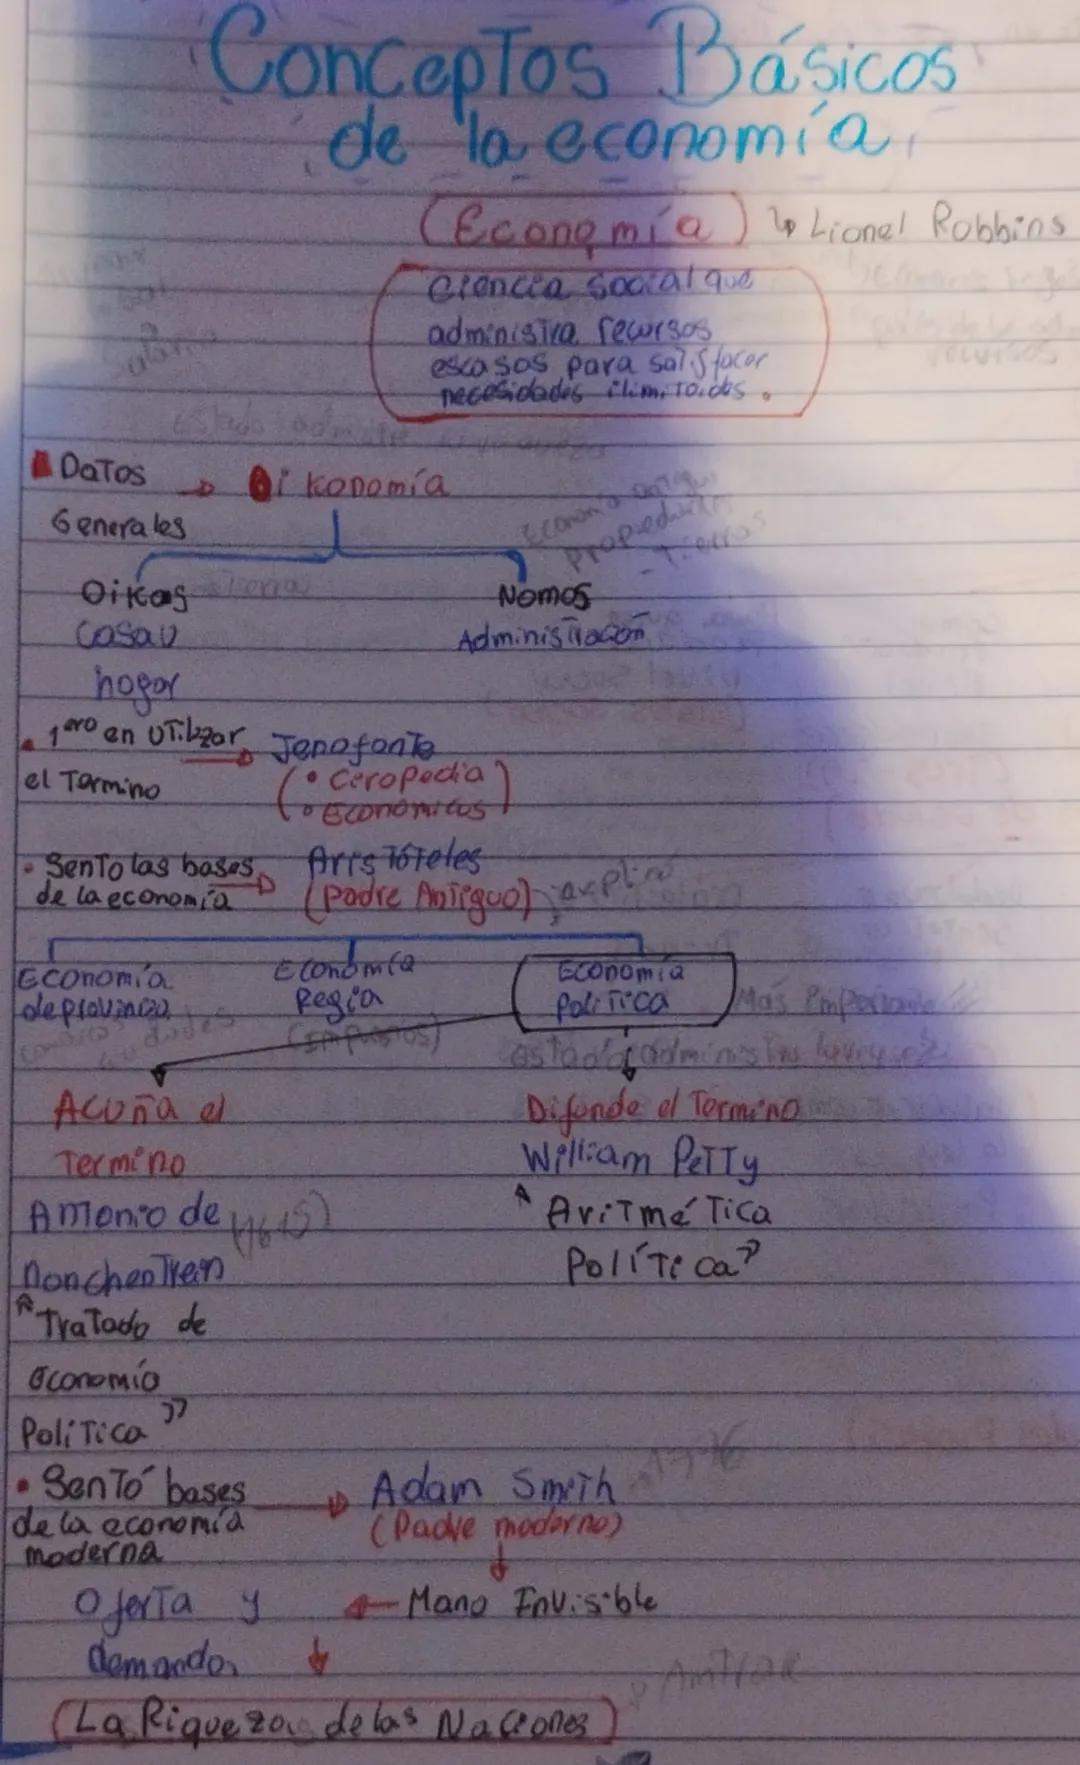 Conceptos Básicos
de la economía
(Economía) ↳ Lionel Robbins
Ciencia social que
administra recursos
escasos para satisfacer
necesidades ilimitadas.
Datos → Oikonomía
Generales
Oikos Nomos
casa u Administración
hogar
• 1ero en utilizar → Jenofonte
el Termino (• Ciropedia
• Economicus)
• Sento las bases → Aristóteles
de la economía (Padre Antiguo)
Economía Economía Economia
de provincia Regia Política Más importante
(impuestos)
Acuña el Difunde el Termino
Termino William Petty
Antonio de (1615) "Aritmética
Monchentrein Política"
"Tratado de
economía
Política"
• Sentó bases → Adam Smith 1776
de la economía (Padre moderno)
moderna
Oferta y ← Mano Invisible
demanda
(La Riqueza de las Naciones)